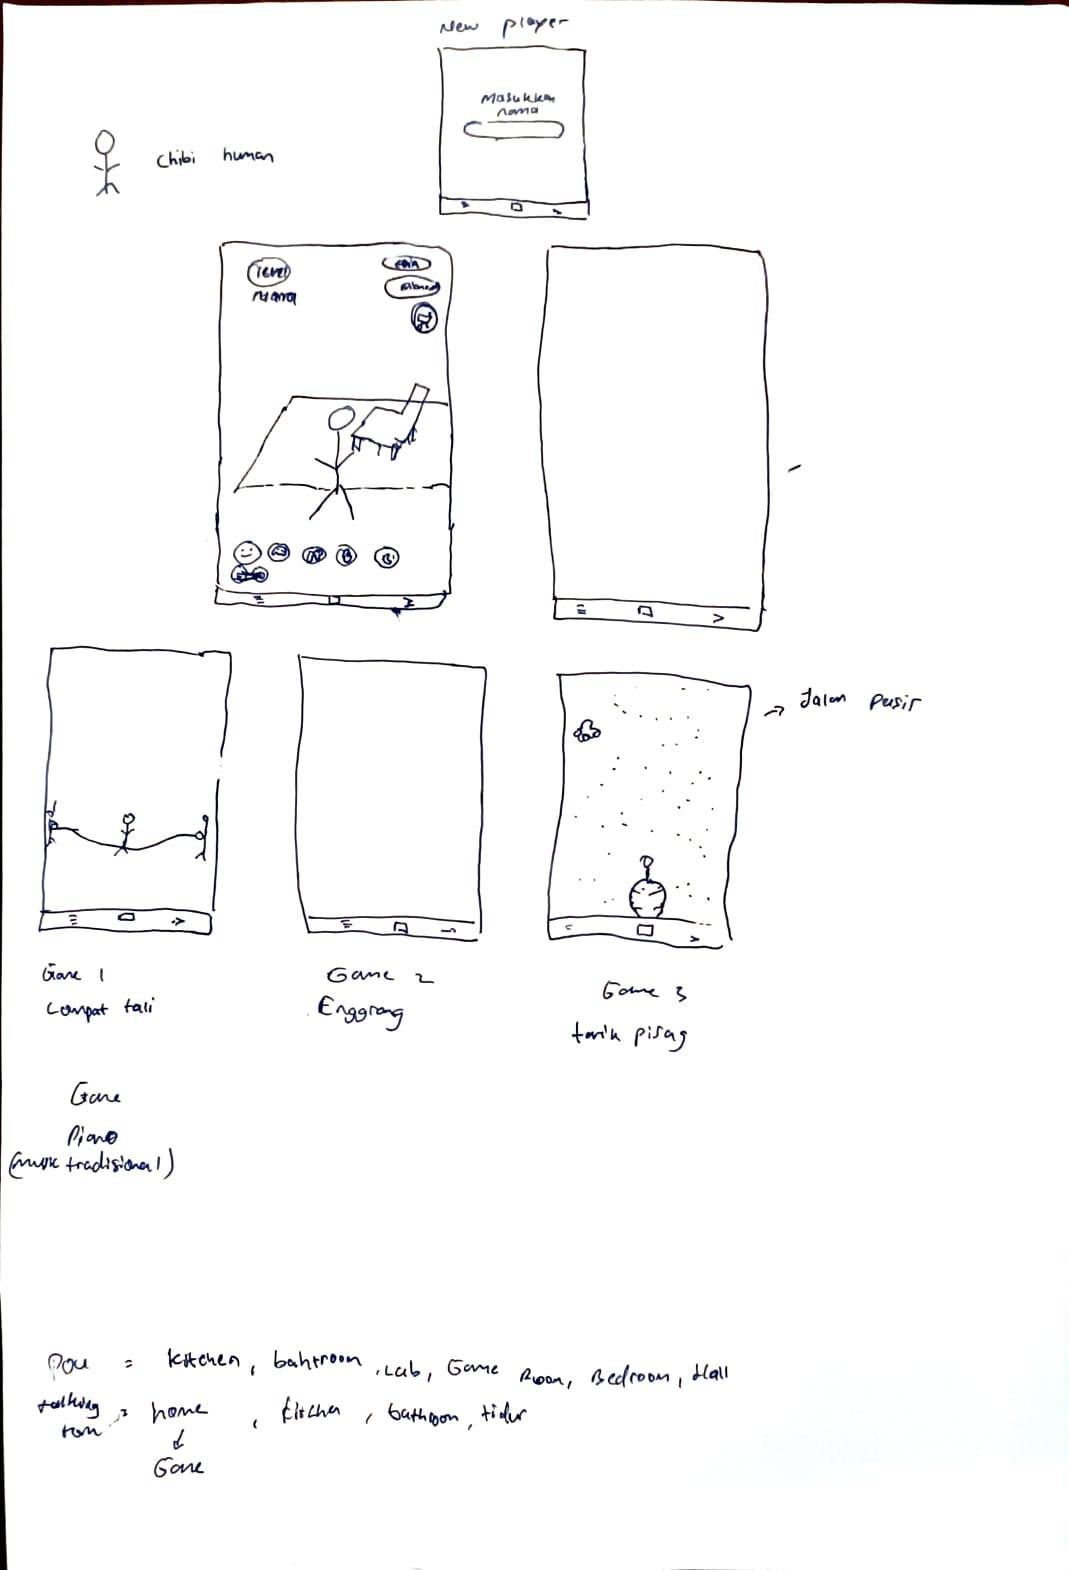 New player
Masukkan
nama
chibi human
level
Nama
coin
Jalan Pasir
Game 1
Lompat tali
Game 2
Enggrang
Game 3
tarik pisag
Game
Piano
(musik tradisional)
Pou = kitchen, bahtroom, Lab, Game Room, Bedroom, Hall
talking tom = home, kitchen, bathroom, tidur
Game